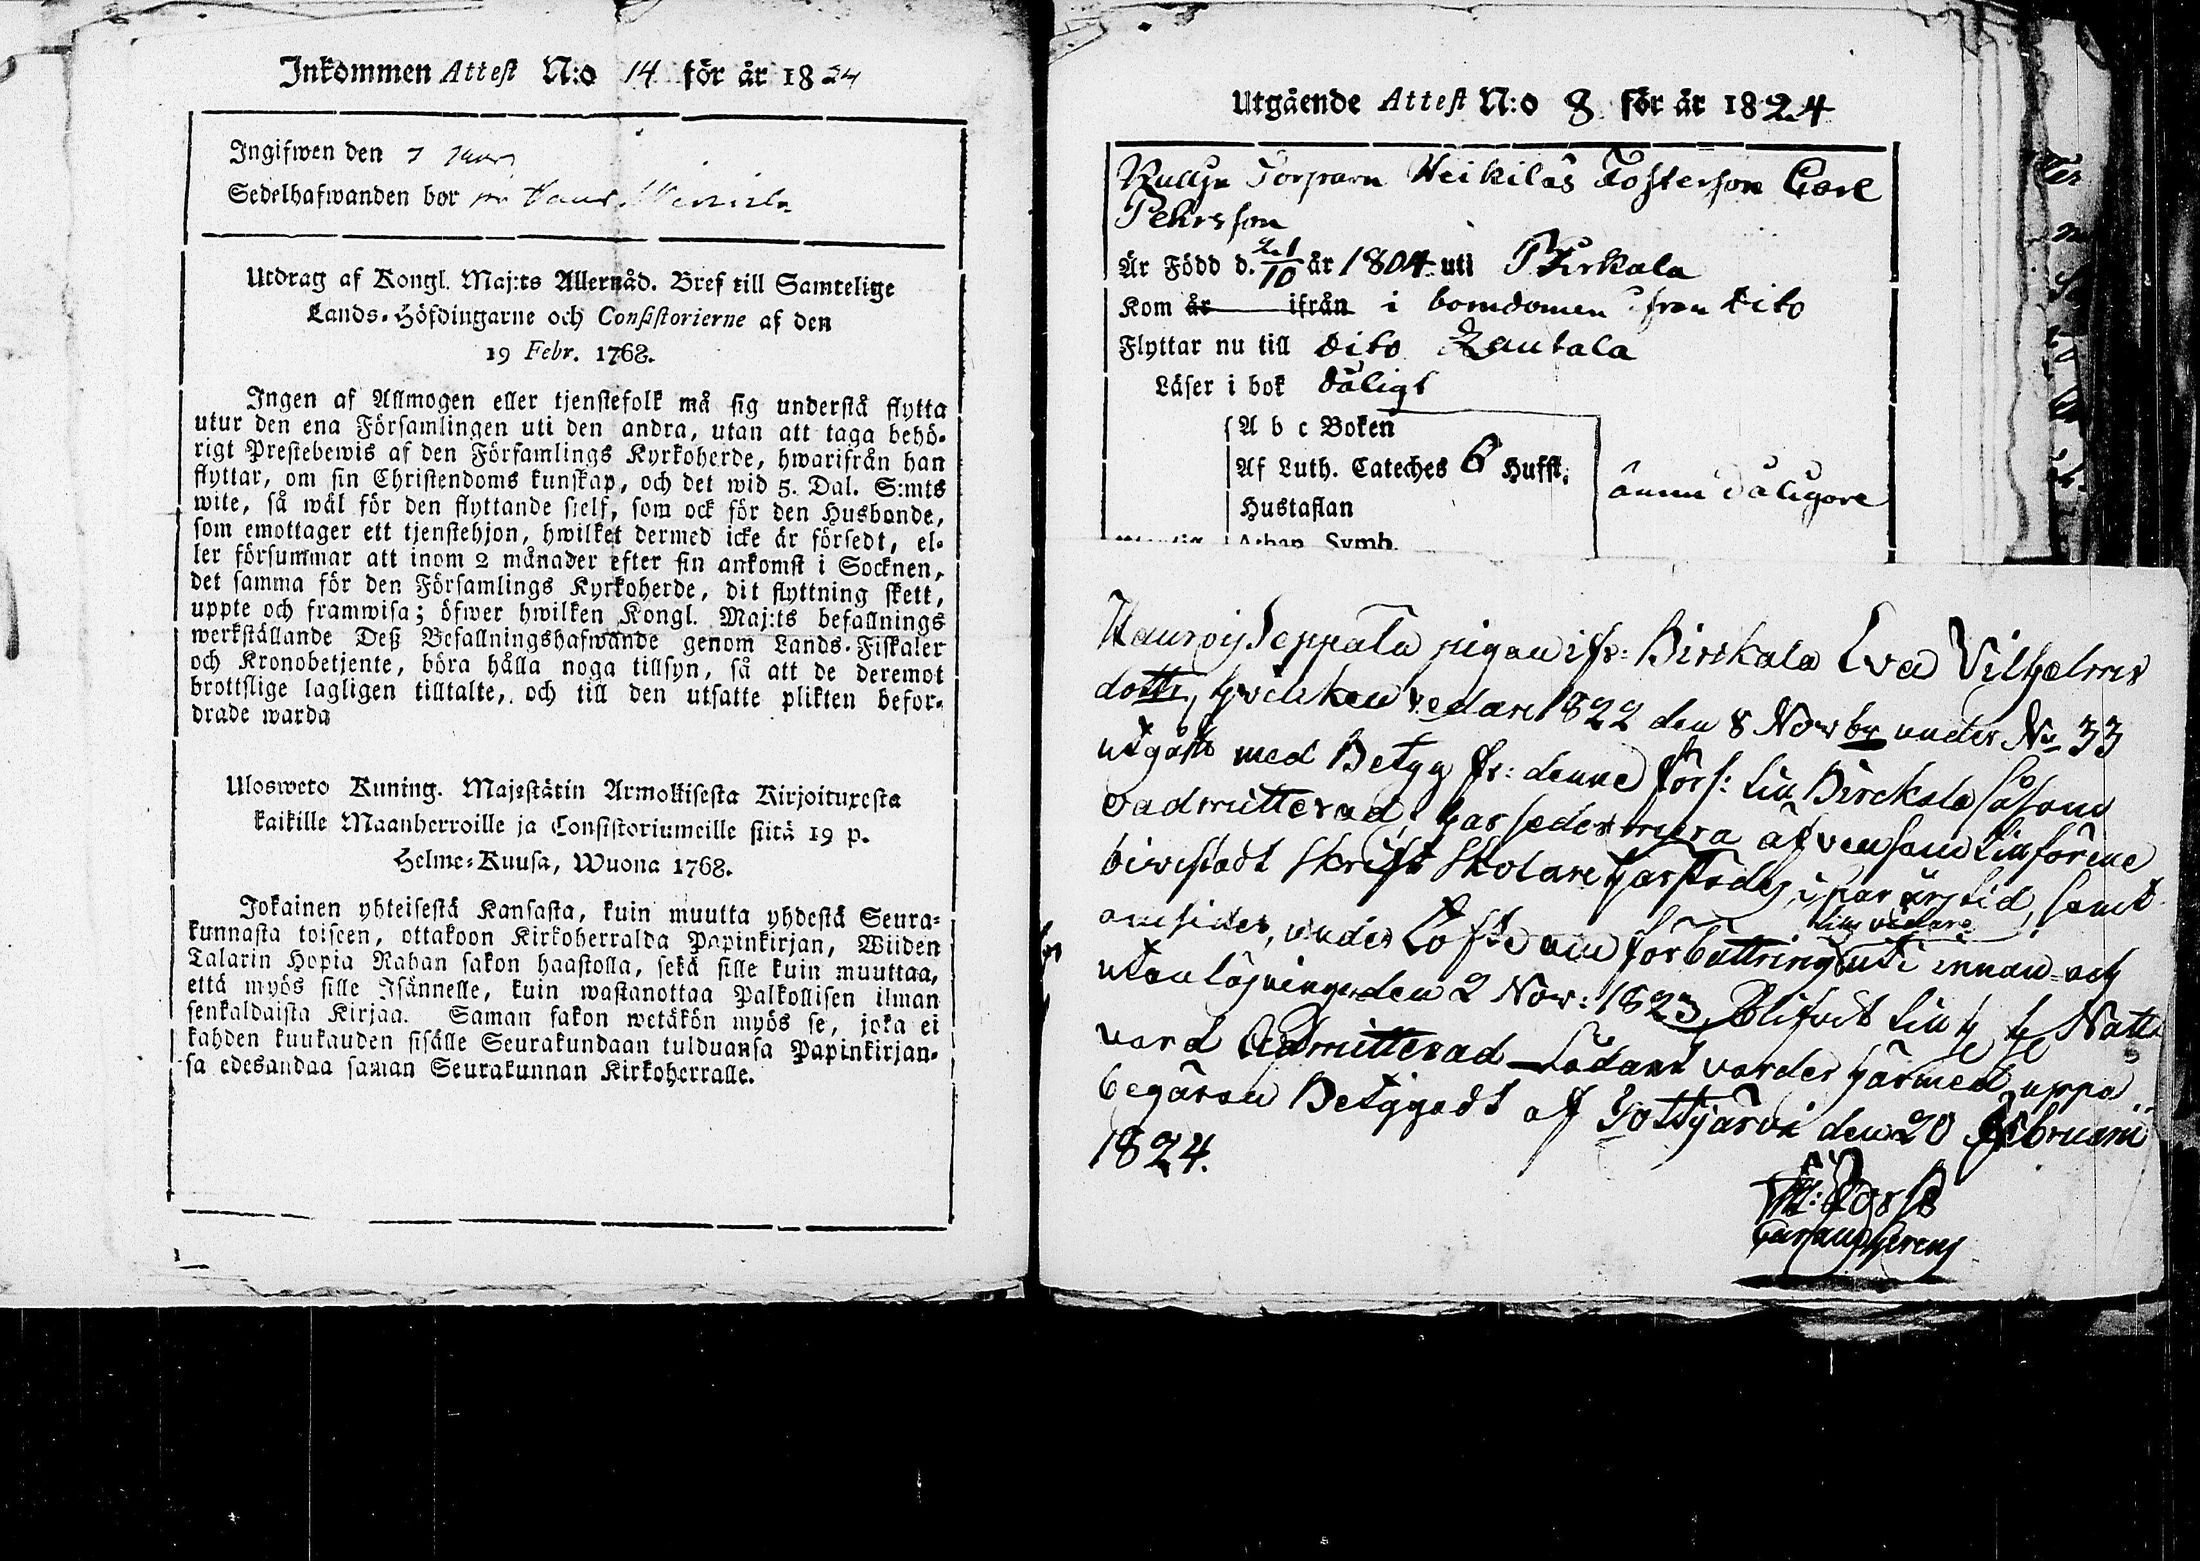 Inkommen Attest N:o 14 för år 1824
Ingifwen den 7
Sedelhafwanden bor
Utdrag af Kongl. Maj:ts Allernåd. Bref till Samtelige
Lands-Höfdingarne och Consistorierne af den
19 Febr. 1768.
Ingen af Allmogen eller tjenstefolk må sig understå flytta
utur den ena Församlingen uti den andra, utan att taga behö-
rigt Prestebewis af den Församlings Kyrkoherde, hwarifrån han
flyttar, om sin Christendoms kunskap, och det wid 5. Dal. S:mts
wite, så wäl för den flyttande sjelf, som ock för den Husbonde,
som emottager ett tjenstehjon, hwilket dermed icke är försedt, el-
ler försummar att inom 2 månader efter sin ankomst i Socknen,
det samma för den Församlings Kyrkoherde, dit flyttning skett,
uppte och framwisa; öfwer hwilken Kongl. Maj:ts befallnings
werkställande Deß Befallningshafwande genom Lands-Fiskaler
och Kronobetjente, böra hålla noga tillsyn, så att de deremot
brottslige lagligen tilltalte, och till den utsatte plikten befor-
drade warda
Ulosweto Kuning. Majestätin Armollisesta Kirjoituxesta
kaikille Maanherroille ja Consistoriumeille siitä 19 p.
Helme-Kuusa, Wuona 1768.
Jokainen yhteisestä Kansasta, kuin muutta yhdestä Seura-
kunnasta toiseen, ottakoon Kirkoherralda Papinkirjan, Wiiden
Talarin Hopia Rahan sakon haastolla, sekä sille kuin muuttaa,
että myös sille Isännelle, kuin wastanottaa Palkollisen ilman
senkaldaista Kirjaa. Saman sakon wetäkön myös se, joka ei
kahden kuukauden sisälle Seurakundaan tulduansa Papinkirjan-
sa edesandaa saman Seurakunnan Kirkoherralle.
Utgående Attest N:o 8 för år 1824
Torparn Heikiläs Fosterson Carl
Pehrsson
Är Född d. 21/10 år 1804 uti Birkala
Kom år ifrån i barndomen från dito
Flyttar nu till dito Lautala
Läser i bok dåligt
A b c Boken
Af Luth. Cateches 6 Hufst.
Hustaflan
ännu dåligare
Athan. Symb.
Seppälä pigan ifr: Birckala Eva Vilhelms
dottr, hvilken redan 1822 den 8 Novbr under No 33
utgått med Betyg fr: denne förs: till Birckala såsom
oadmitterad, har sedermera äfvensom tillförne
bivistadt Skrift Skolare härstädes i par års tid, samt
omsider, under Löfte om förbättring till vidare uti innan och
utanläsningen den 2 Nov: 1823, Blifvit till H. H. Natt-
vard Admitterad. Sådant varder härmed, uppå
begäran Betygadt af Tottijärvi den 20 Februarii
1824.